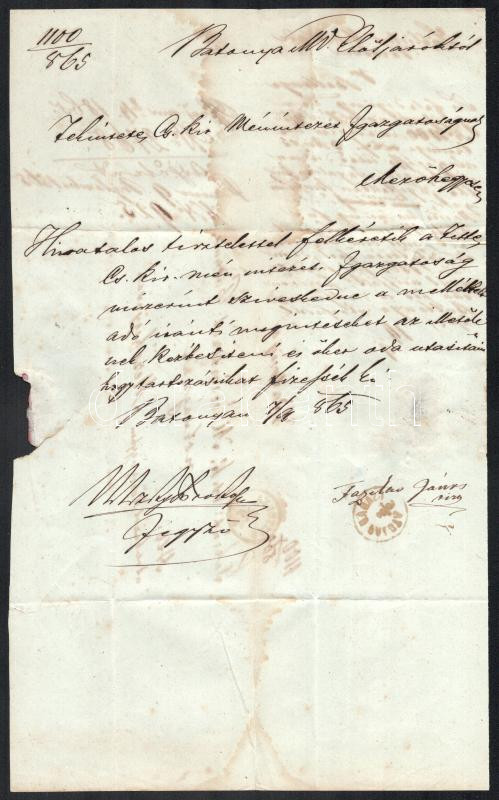 1100
865
Batonya Mv Előljáróktól
Tekintetes Cs. kir Ménintézet Igazgatóságnak
Mezőhegyesen
Hivatalos tisztelettel felkéretik a Ttts
Cs. kir. mén intézet. Igazgatóság
miszerint szíveskedne a mellékelt
adó iránti megintéseket az illetők
nek kézbesíteni és őket oda utasítani
hogy tartozásaikat fizessék le
Batonyán 7/9 865
Jegyző
Fazekas János